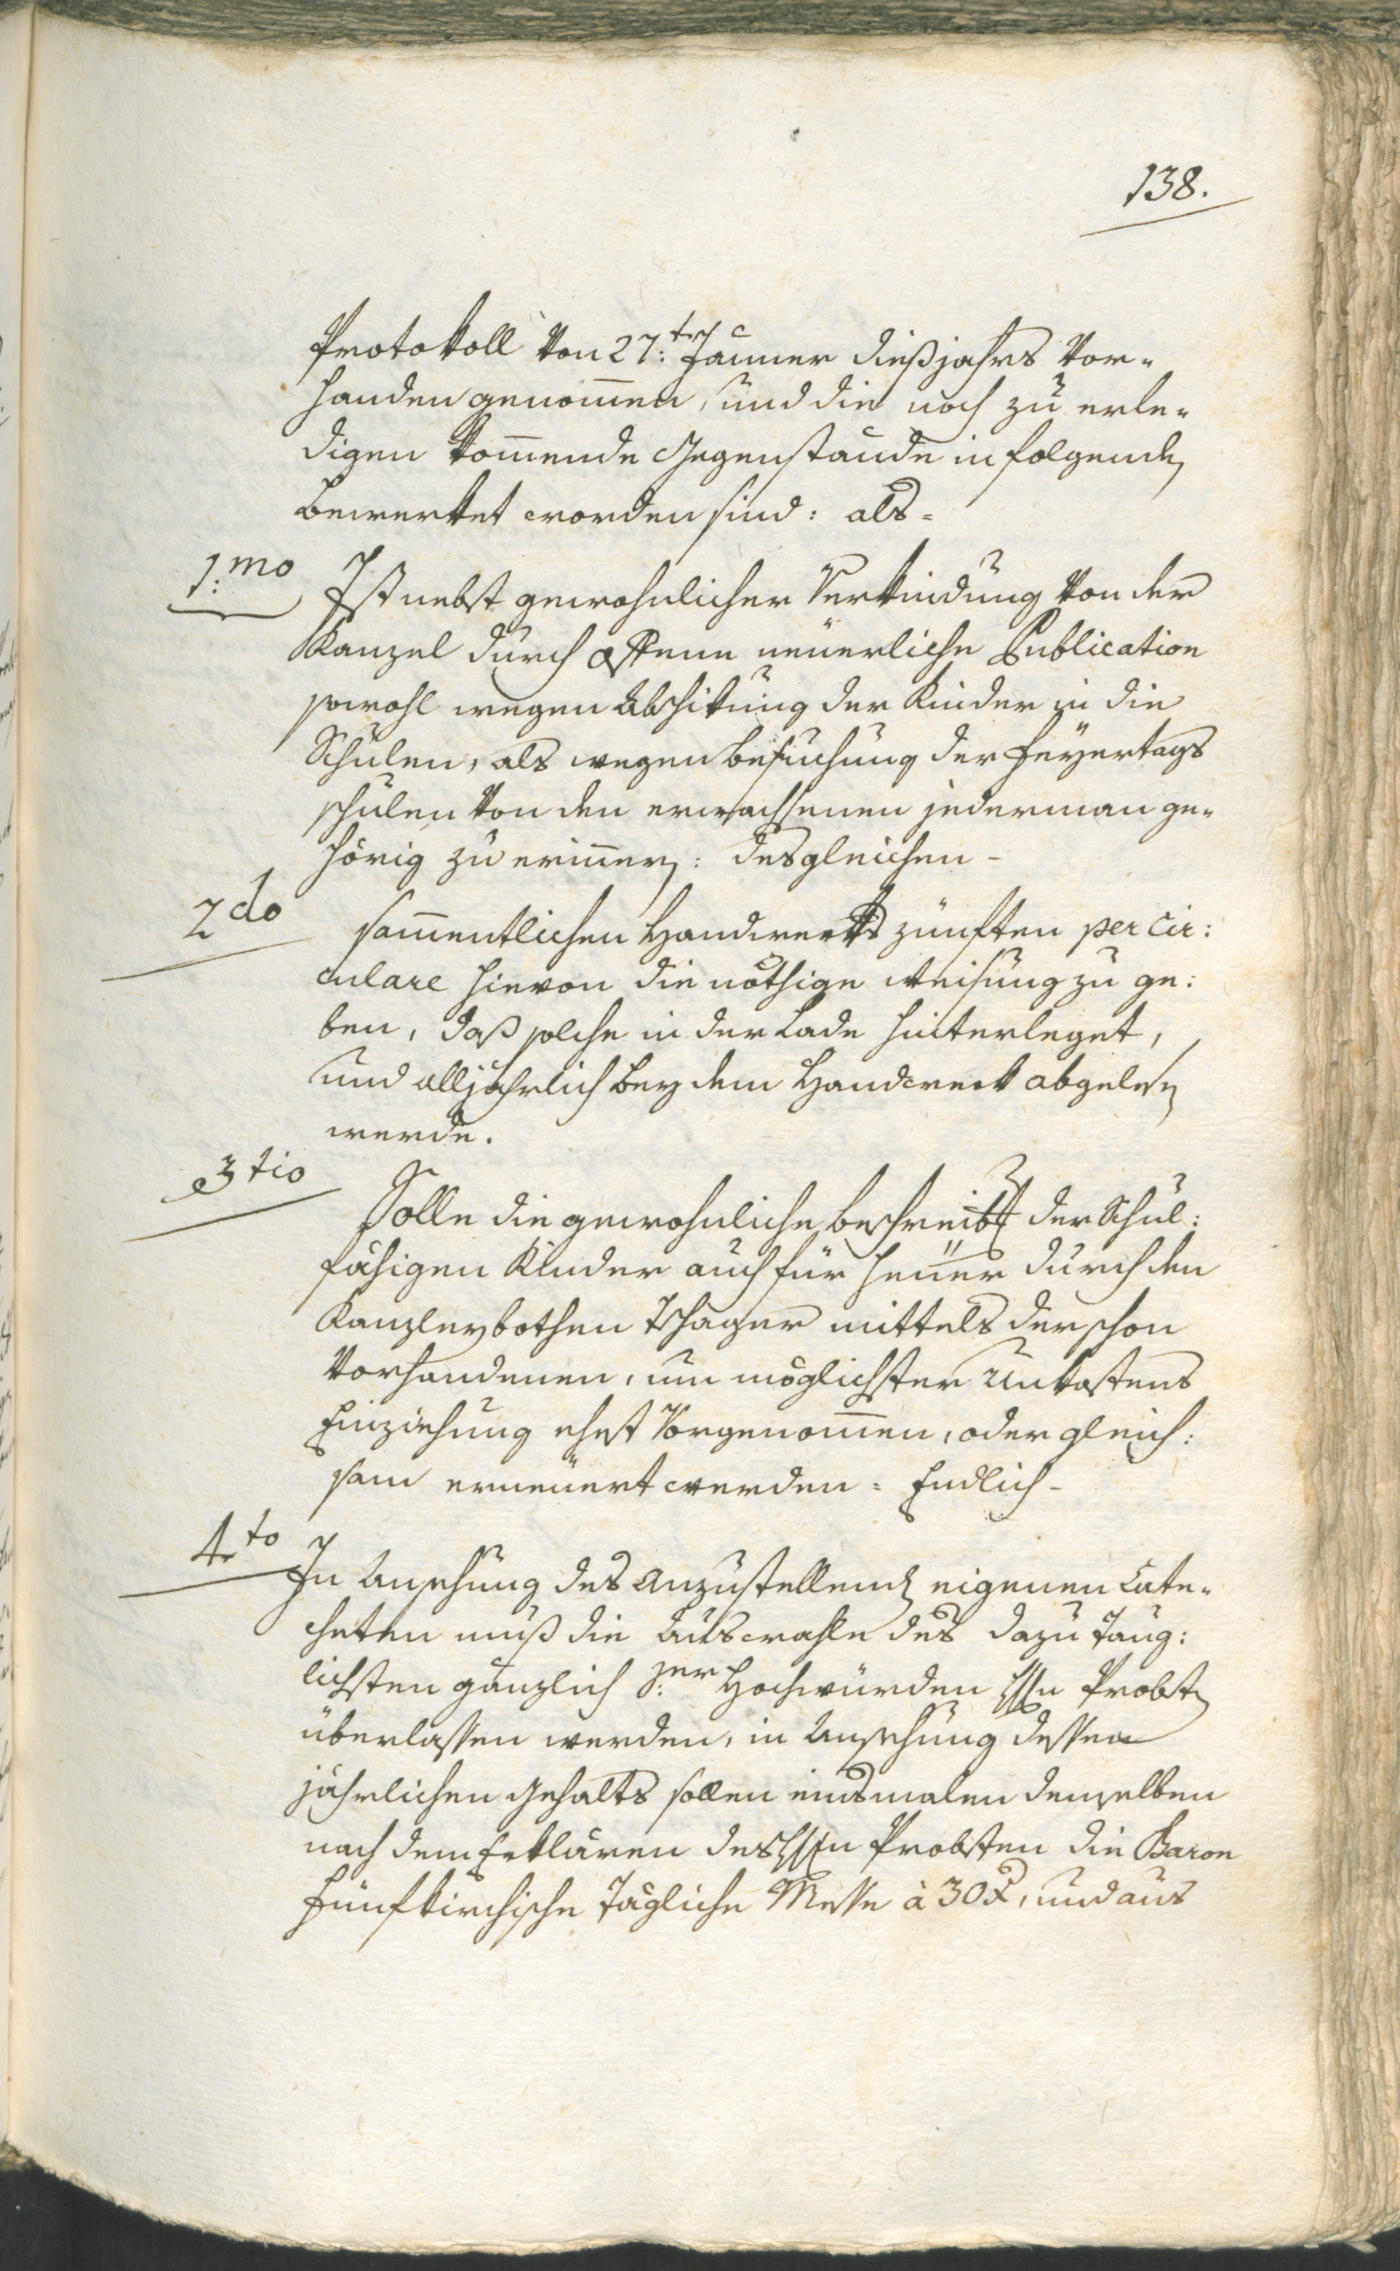 138.
Protokoll von 27:ten Jäner dießjahrs vor-
handen genom̄en, und die noch zu erle-
digen kom̄ende Gegenstände in folgenden
bemerket worden sind: als-
1:mo Ist nebst gewohnlicher Verkündung von der
Kanzel durch offene neüerliche Publication
sowohl wegen Abschikung der Kinder in die
Schulen, als wegen Besuchung der Feyertags
schulen von den erwachsenen jederman ge-
hörig zu erinnern: desgleichen-
2do sam̄entlichen Handwerks zünften per cir:
culare hievon die nöthige Weisung zu ge:
ben, daß solche in der Lade hinterleget,
und alljährlich bey dem Handwerk abgelesen
werde.
3tio Solle die gewohnliche Beschreibg der Schul:
fähigen Kinder auch für heüer durch den
Kanzleybothen Tschager mittels der schon
vorhandenen, um möglichster Unkostens
Einziehung ehest vorgenom̄en, oder gleich:
sam erneüert werden: Endlich-
4to In Ansehung des anzustellenden eigenen Cate-
cheten muß die Auswahle des dazu Taug:
lichsten gänzlich Sr. Hochwürden Hrn Probsten
überlassen werden, in Ansehung dessen
jährlichen Gehalts sollen einsmalen demselben
nach dem Erklären des Hrn Probsten die Baron
Fünfkirchische Tägliche Messe à 30 x, und aus